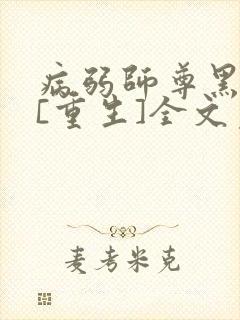 病弱師尊黑
[重生]全文
麦考米克